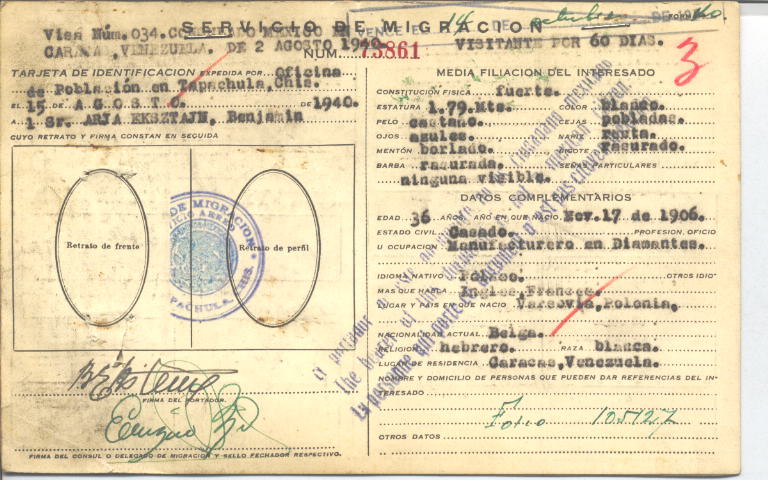 SERVICIO DE MIGRACION
Visa Núm. 034. MEXICO EN VENCE EL 14 DE octubre DE 1940.
CARACAS, VENEZUELA. DE 2 AGOSTO 1940. VISITANTE POR 60 DIAS.
NUM. 73861
3
TARJETA DE IDENTIFICACION EXPEDIDA POR Oficina
de Población en Tapachula, Chis.
EL 15 DE A G O S T O. DE 1940.
A 1 Sr. ARJA EKSZTAJN, Benjamin
CUYO RETRATO Y FIRMA CONSTAN EN SEGUIDA
Retrato de frente
Retrato de perfil
DE MIGRACION
TAPACHULA, CHIS.
FIRMA DEL PORTADOR.
FIRMA DEL CONSUL O DELEGADO DE MIGRACION Y SELLO FECHADOR RESPECTIVO.
MEDIA FILIACION DEL INTERESADO
CONSTITUCION FISICA fuerte.
ESTATURA 1.79.Mts. COLOR blanco.
PELO castaño. CEJAS pobladas.
OJOS azules. NARIZ recta.
MENTÓN borlado. BIGOTE rasurado.
BARBA rasurada. SEÑAS PARTICULARES
ninguna visible.
DATOS COMPLEMENTARIOS
EDAD 36 AÑOS. AÑO EN QUE NACIO Nov. 17 de 1906.
ESTADO CIVIL Casado. PROFESION, OFICIO
U OCUPACION Manufacturero en Diamantes.
IDIOMA NATIVO Polaco. OTROS IDIO-
MAS QUE HABLA Ingles, Frances.
LUGAR Y PAIS EN QUE NACIO Varsovia, Polonia.
NACIONALIDAD ACTUAL Belga.
RELIGION hebrero. RAZA blanca.
LUGAR DE RESIDENCIA Caracas, Venezuela.
NOMBRE Y DOMICILIO DE PERSONAS QUE PUEDEN DAR REFERENCIAS DEL IN-
TERESADO
105127
OTROS DATOS
El portador de
the bearer of